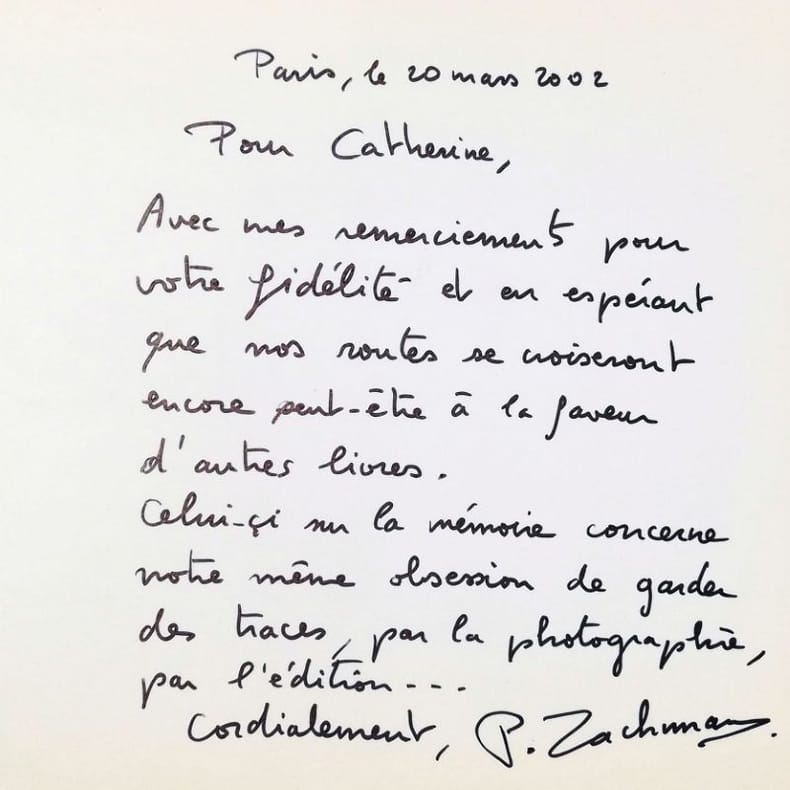 Paris, le 20 mars 2002
Pour Catherine,
Avec mes remerciements pour
votre fidélité et en espérant
que nos routes se croiseront
encore peut-être à la faveur
d'autres livres.
Celui-çi sur la mémoire concerne
notre même obsession de garder
des traces, par la photographie,
par l'édition---
Cordialement, P. Zachmann.